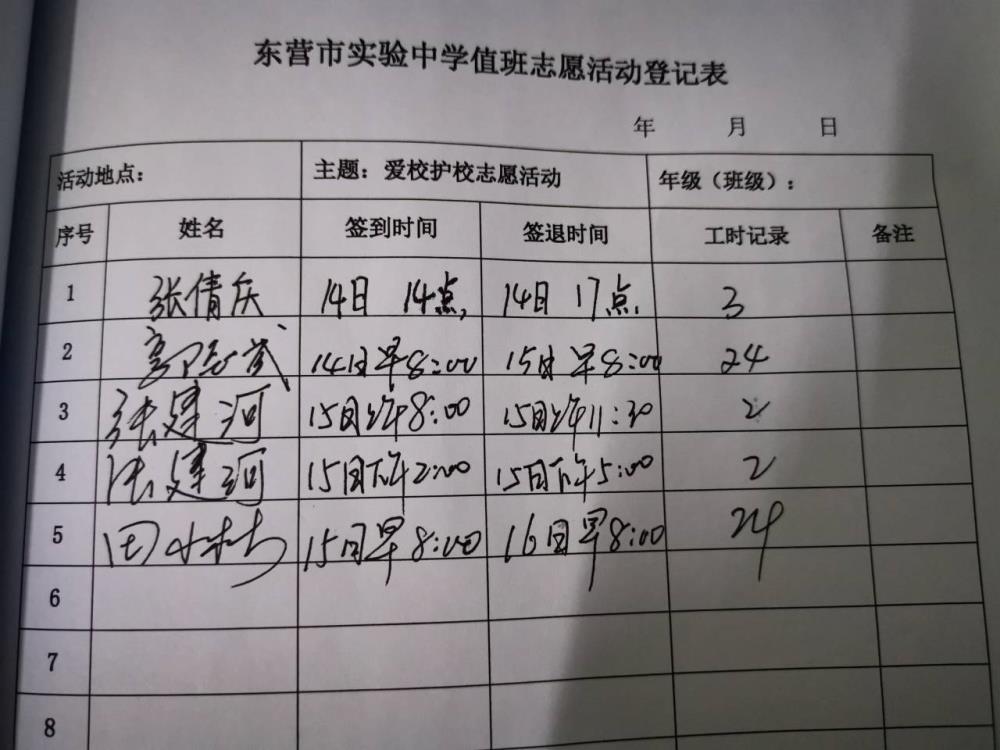 东营市实验中学值班志愿活动登记表
年 月 日
活动地点： 主题：爱校护校志愿活动 年级（班级）：
序号 姓名 签到时间 签退时间 工时记录 备注
1 张倩庆 14日 14点, 14日 17点. 3
2 14日早8:00 15日早8:00 24
3 张建河 15日上午8:00 15日上午11:30 2
4 张建河 15日下午2:00 15日下午5:00 2
5 田 15日早8:00 16日早8:00 24
6
7
8